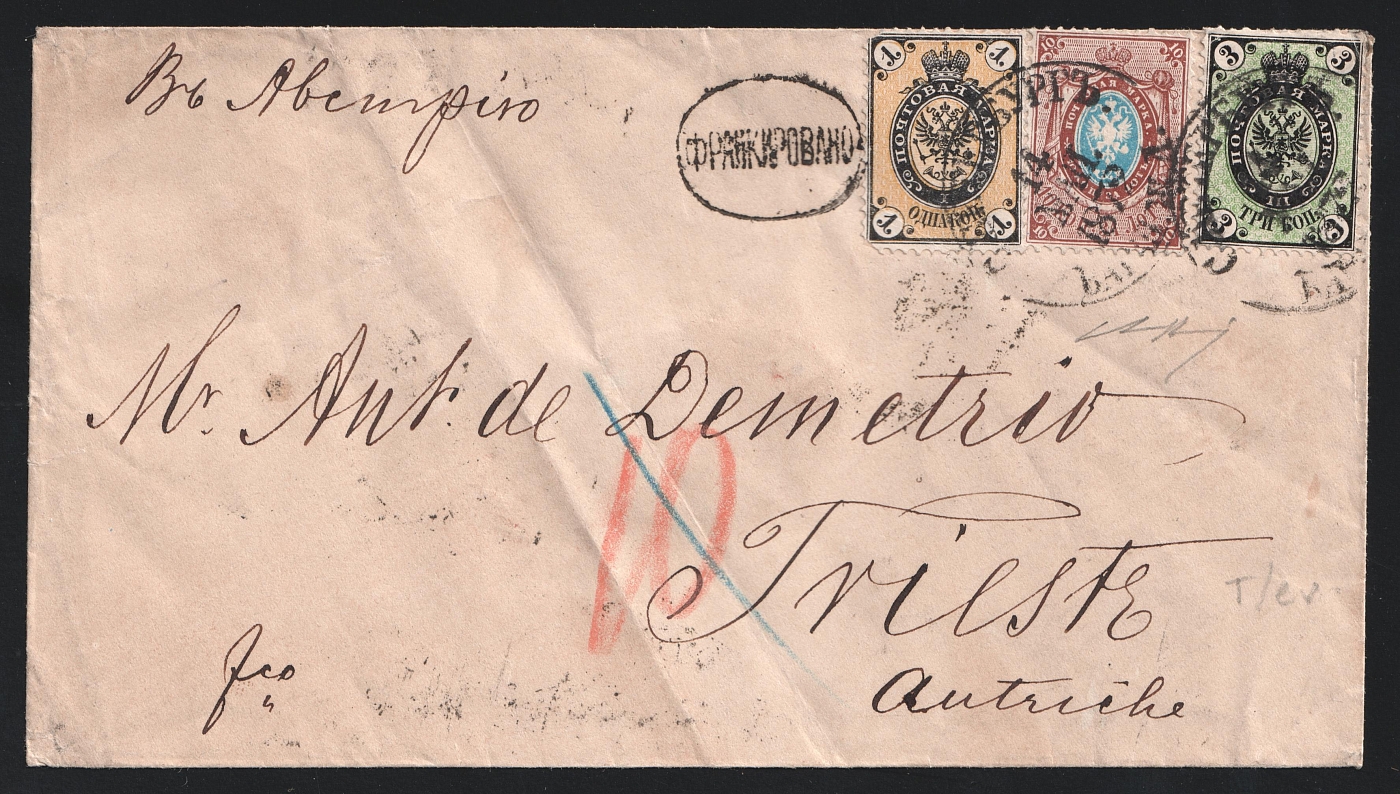 Въ Австрію
ФРАНКИРОВАНО
1 1
ПОЧТОВАЯ МАРКА
I
ОДНА КОП.
1 1
10 10
ПОЧТОВАЯ МАРКА
10 10
3 3
ПОЧТОВАЯ МАРКА
III
ТРИ КОП.
3 3
Mr. Ant. de Demetrio
10
Trieste
Autriche
fco